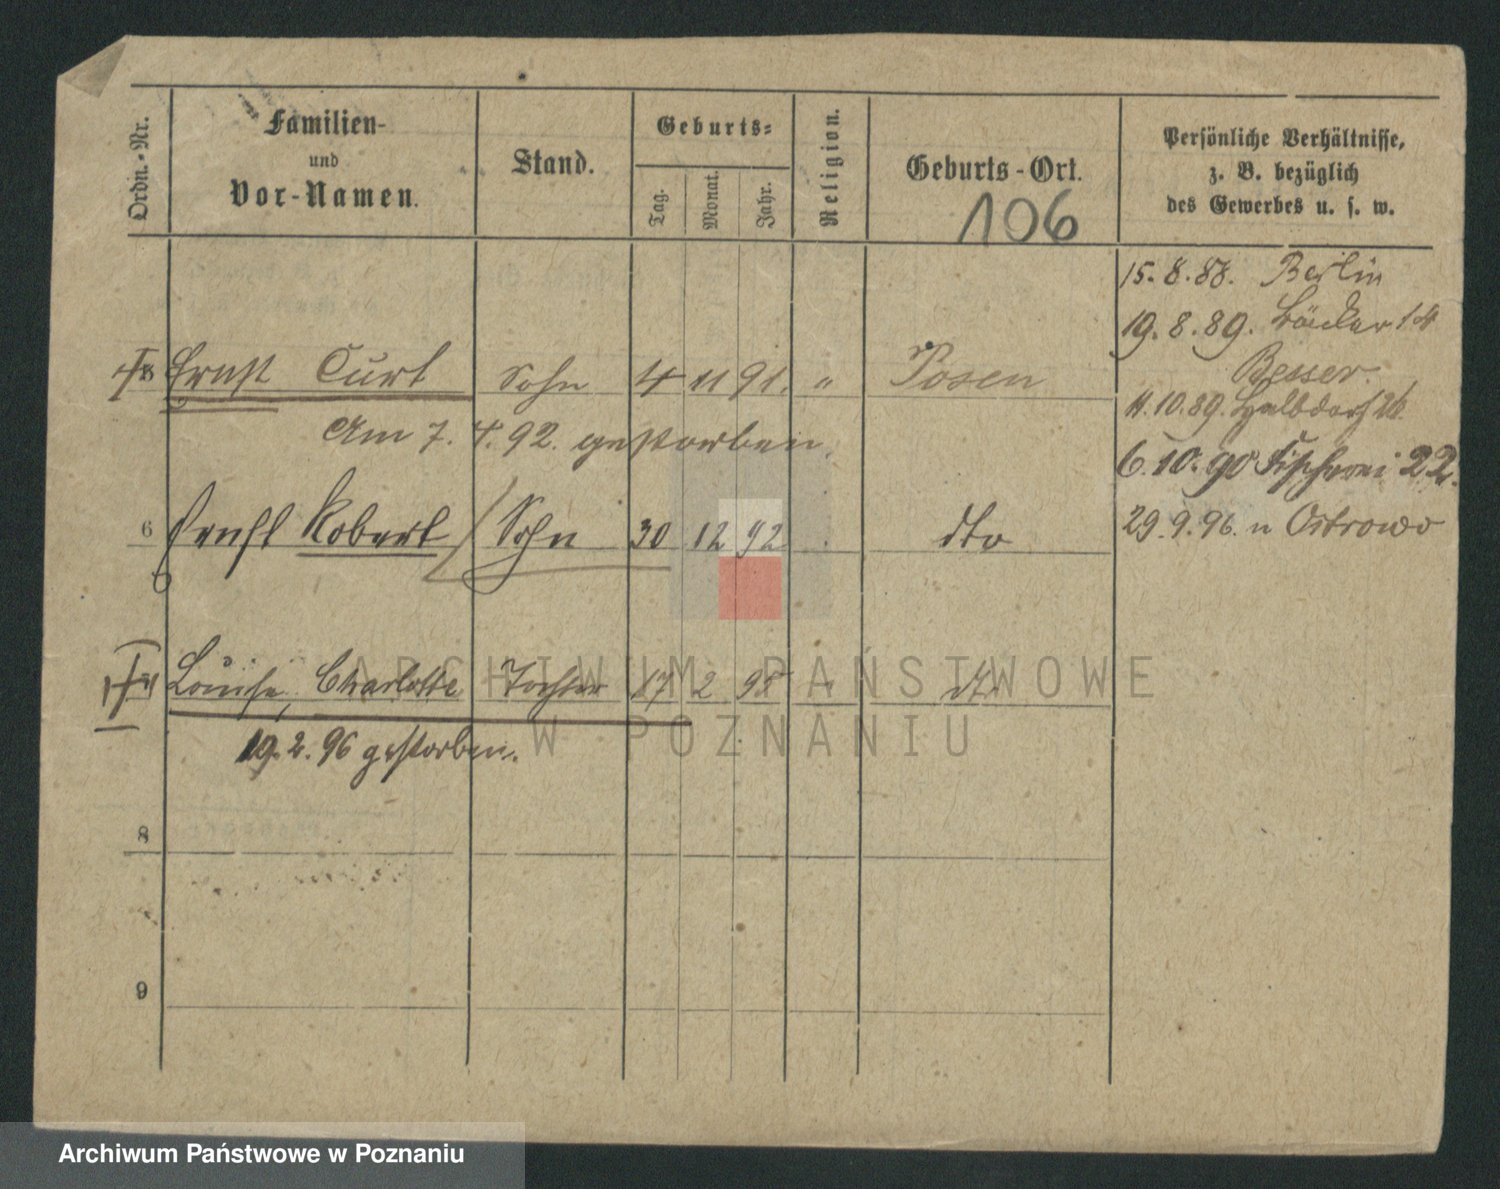 Ordn.-Nr.
Familien-
und
Vor-Namen.
Stand.
Geburts-
Tag.
Monat.
Jahr.
Religion.
Geburts-Ort.
106
Persönliche Verhältnisse,
z. B. bezüglich
des Gewerbes u. s. w.
15.8.88. Berlin
19.8.89. Bäcker
Besser.
11.10.89. Halbdorf
6.10.90 Fischerei 22.
29.9.96. n Ostrowo
Ernst Curt Sohn 4 11 91. " Posen
Am 7. 4. 92. gestorben.
6 Ernst Robert Sohn 30 12 92 dto
Louise, Charlotte Tochter 17 2 95 " dto
19. 2. 96 gestorben.
8
9
ARCHIWUM PAŃSTWOWE
W POZNANIU
Archiwum Państwowe w Poznaniu